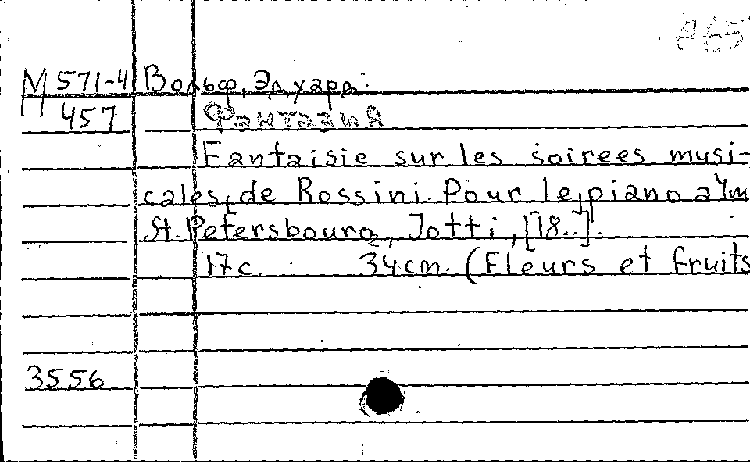 865
М 571-4 Вольф, Эдуард.
457 Фантазия
Fantaisie sur les soirees musi-
cales, de Rossini. Pour le piano a 4m
St. Petersbourg, Jotti, [18..].
17 c. 34 cm. (Fleurs et fruits
3556